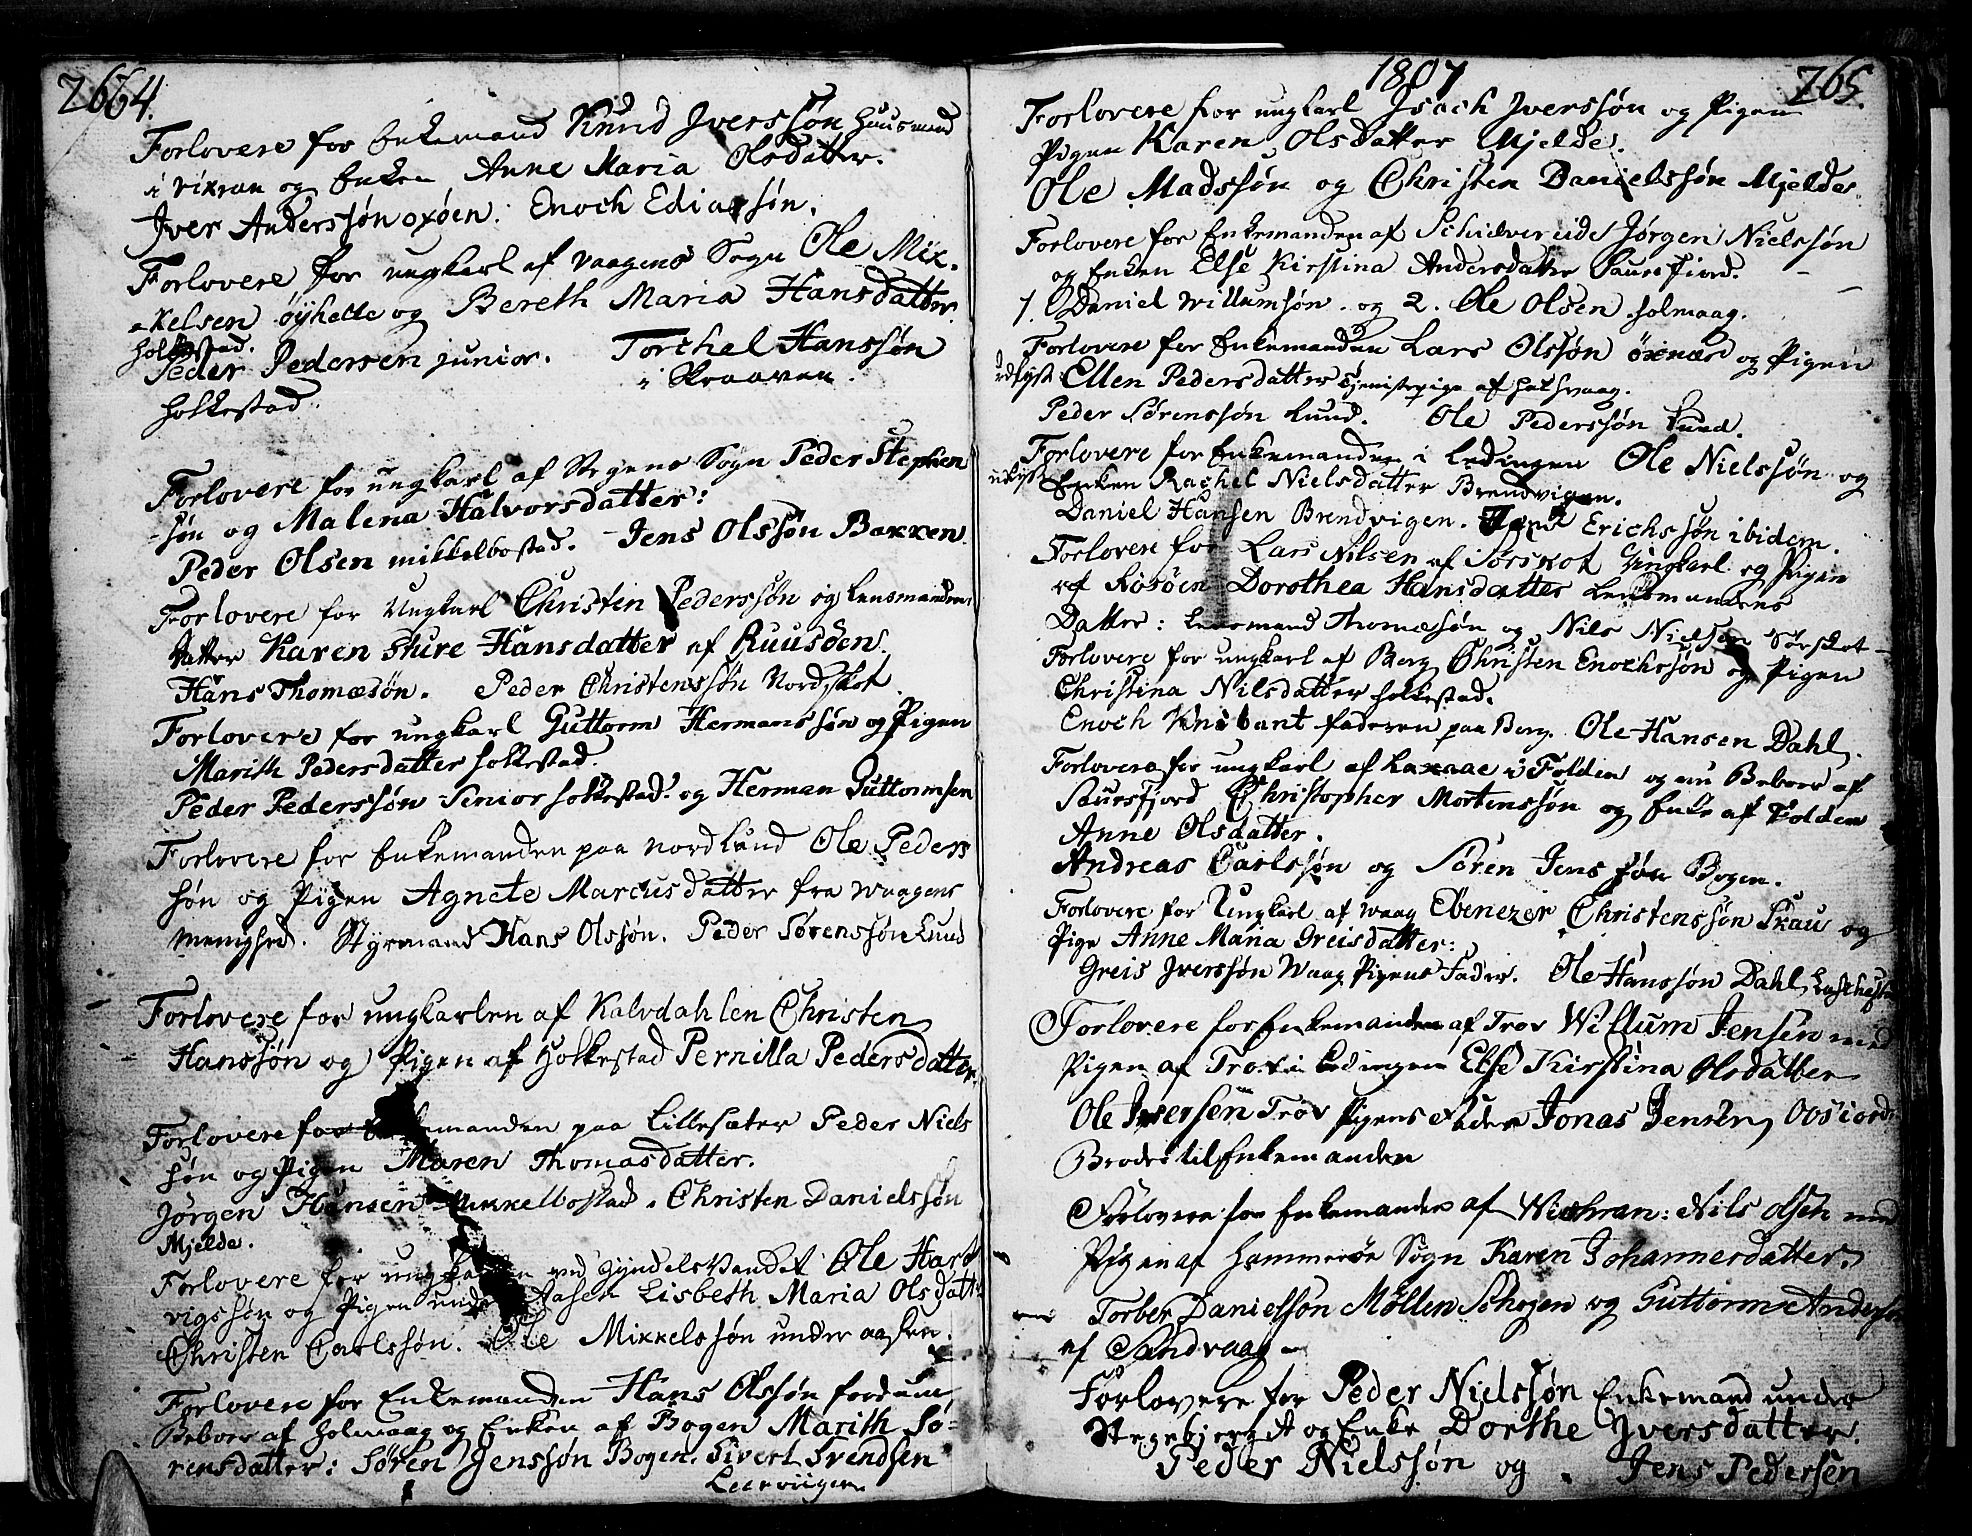 264.
Forlovere for Enkemand Knud Iverssøn Huusmand
i Vixran og Enken Anne Maria Olsdatter.
Iver Anderssøn oxøen. Enoch Ediassøn.
Forlovere for ungkarl af Vaagens Sogn Ole Mix-
-kelsen øÿhelle og Bereth Maria Hansdatter
holkestad.
Peder Pedersen junior. Torchel Hanssøn
holkestad i Skraaven.
Forlovere for ungkarl af Stegens Sogn Peder Stephen
-søn og Malena Halvorsdatter:
Peder Olsen mikkelbostad. Jens Olssøn Baxxen
Forlovere for Ungkarl Christen Pederssøn og Lensmandens
datter Karen Sture Hansdatter af Ruusøen.
Hans Thomæsøn. Peder Christenssøn Nordskot
Forlovere for ungkarl Guttorm Hermanssøn og Pigen
Marith Pedersdatter holkestad.
Peder Pederssøn Senior holkestad. og Herman Guttormsen
Forlovere for Enkemanden paa nordlund Ole Peders
søn og Pigen Agnete Marcusdatter fra Waagens
Menighed. Styrmand Hans Olssøn. Peder Sørenssøn Lund
Forlovere for ungkarlen af Kalvdahlen Christen
Hanssøn og Pigen af Holkestad Pernilla Pedersdatter
Forlovere for Enkemanden paa Lillesæter Peder Niels
søn og Pigen Maren Thomasdatter.
Jørgen Hansen Mikkelbostad. Christen Danielssøn
Mjelde.
Forlovere for ungkarlen ved Gyndelsvandet Ole Hart
vigssøn og Pigen under Aasen Lisbeth Maria Olsdatter
Christen Carlssøn. Ole Mikkelssøn under aasen.
Forlovere for Enkemanden Hans Olssøn fordum
Beboer af holmaag og Enken af Bogen Marith Sø-
rensdatter: Søren Jenssøn Bogen. Sivert Svendsen
Leerviigen
1807
265.
Forlovere for ungkarl Isach Iverssøn og Pigen
Pigen Karen Olsdatter Mjelde.
Ole Madssøn og Christen Danielssøn Mjelde.
Forlovere for Enkemanden af Schidvereide Jørgen Nielssøn
og Enken Else Kirstina Andersdatter Saursfiord.
1. Daniel Willumsøn. og 2. Ole Olsen. holmaag.
Forlovere for Enkemanden Lars Olssøn öxnæs og Pigen
Ellen Pedersdatter tjenistepige af
Peder Sørenssøn Lund. Ole Pederssøn Lund.
Forlovere for Enkemanden i Lødingen Ole Nielssøn og
Enken Rachel Nielsdatter Brendvigen.
Daniel Hansen Brendvigen. Erichssøn ibidem.
Forlovere for Lars Nilsen af Sørskot Ungkarl og Pigen
af Rosøen Dorothea Hansdatter Lensmandens
Datter: Lensmand Thomæsøn og Nils Nielsen Sørskot
Forlovere for ungkarl af Berg Christen Enochssøn og Pigen
Christina Nilsdatter holkestad.
Enoch faderen paa Berg. Ole Hansen Dahl.
Forlovere for ungkarl af Laxaae i Folden og nu Beboer af
Saursfjord Christopher Mortenssøn og Enke af Folden
Anne Olsdatter.
Andreas Carlssøn og Sören Jenssøn Bogen.
Forlovere for Ungkarl af Waag Ebenezer Christenssøn Skau og
Pige Anne Maria Greisdatter:
Greis Iverssøn Waag Pigens Fader. Ole Hanssøn Dahl,
Forlovere for Enkemanden af Trov Willum Jensen med
Pigen af Lødingen Else Kirstina Olsdatter
Ole Iversen Trov Pigens Fader Jonas Jensen,
Broder til Enkemanden
Forlovere for Enkemanden af Wichran: Nils Olsen med
Pigen af Hammerøe Sogn Karen Johannesdatter.
Torber Danielssøn Möllen Schogen og Guttorm Anderssøn
af Sandvaag
Forlovere for Peder Nielssøn Enkemand under
Stegebjerget og Enke Dorthe Iversdatter.
Peder Nielssøn og Jens Pedersen